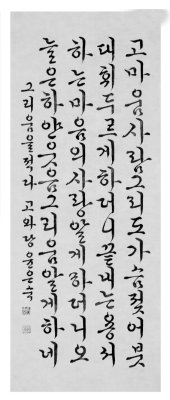 고마움사랑그리도가슴젖어붓
대휘두르게하더니끝내는용서
하는마음의사랑알게하더니오
늘은하얀웃음그리움알게하네
그리움을적다 고와랑윤은숙